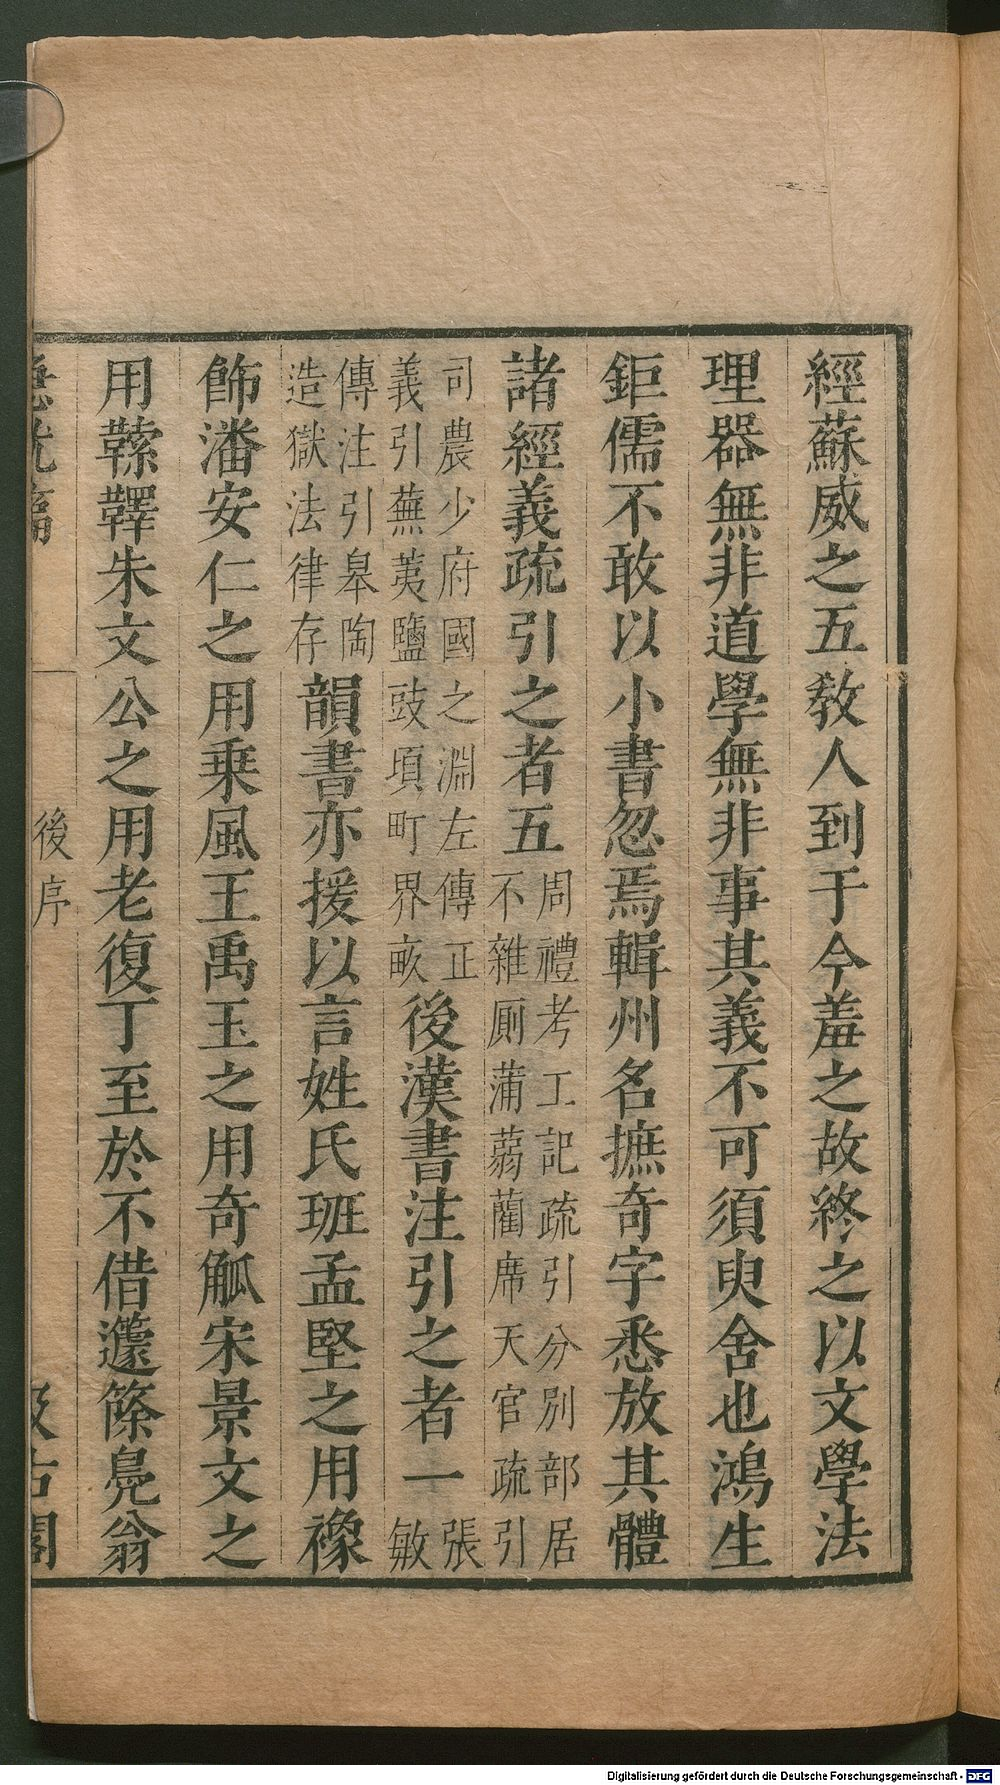 經蘇威之五教人到于今羞之故終之以文學法
理器無非道學無非事其義不可須臾舍也鴻生
鉅儒不敢以小書忽焉輯州名摭奇字悉放其體
諸經義疏引之者五周禮考工記疏引分別部居
不雜厠蒲蒻藺席天官疏引
司農少府國之淵左傳正
義引蕪荑鹽豉頃町界畝後漢書注引之者一張
敏
傳注引皋陶
造獄法律存韻書亦援以言姓氏班孟堅之用襐
飾潘安仁之用乗風王禹玉之用奇觚宋景文之
用䋈韗朱文公之用老復丁至於不借籧篨鳧翁
後序
Digitalisierung gefördert durch die Deutsche Forschungsgemeinschaft - DFG